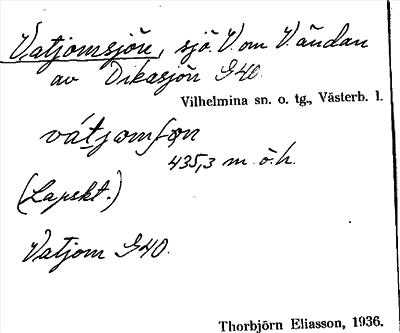 Vatjomsjön, sjö V. om V. ändan
av Dikasjön G40.
Vilhelmina sn. o. tg., Västerb. l.
vátjomʃøn
435,3 m. ö. h.
(Lapskt.)
Vatjom G40.
Thorbjörn Eliasson, 1936.